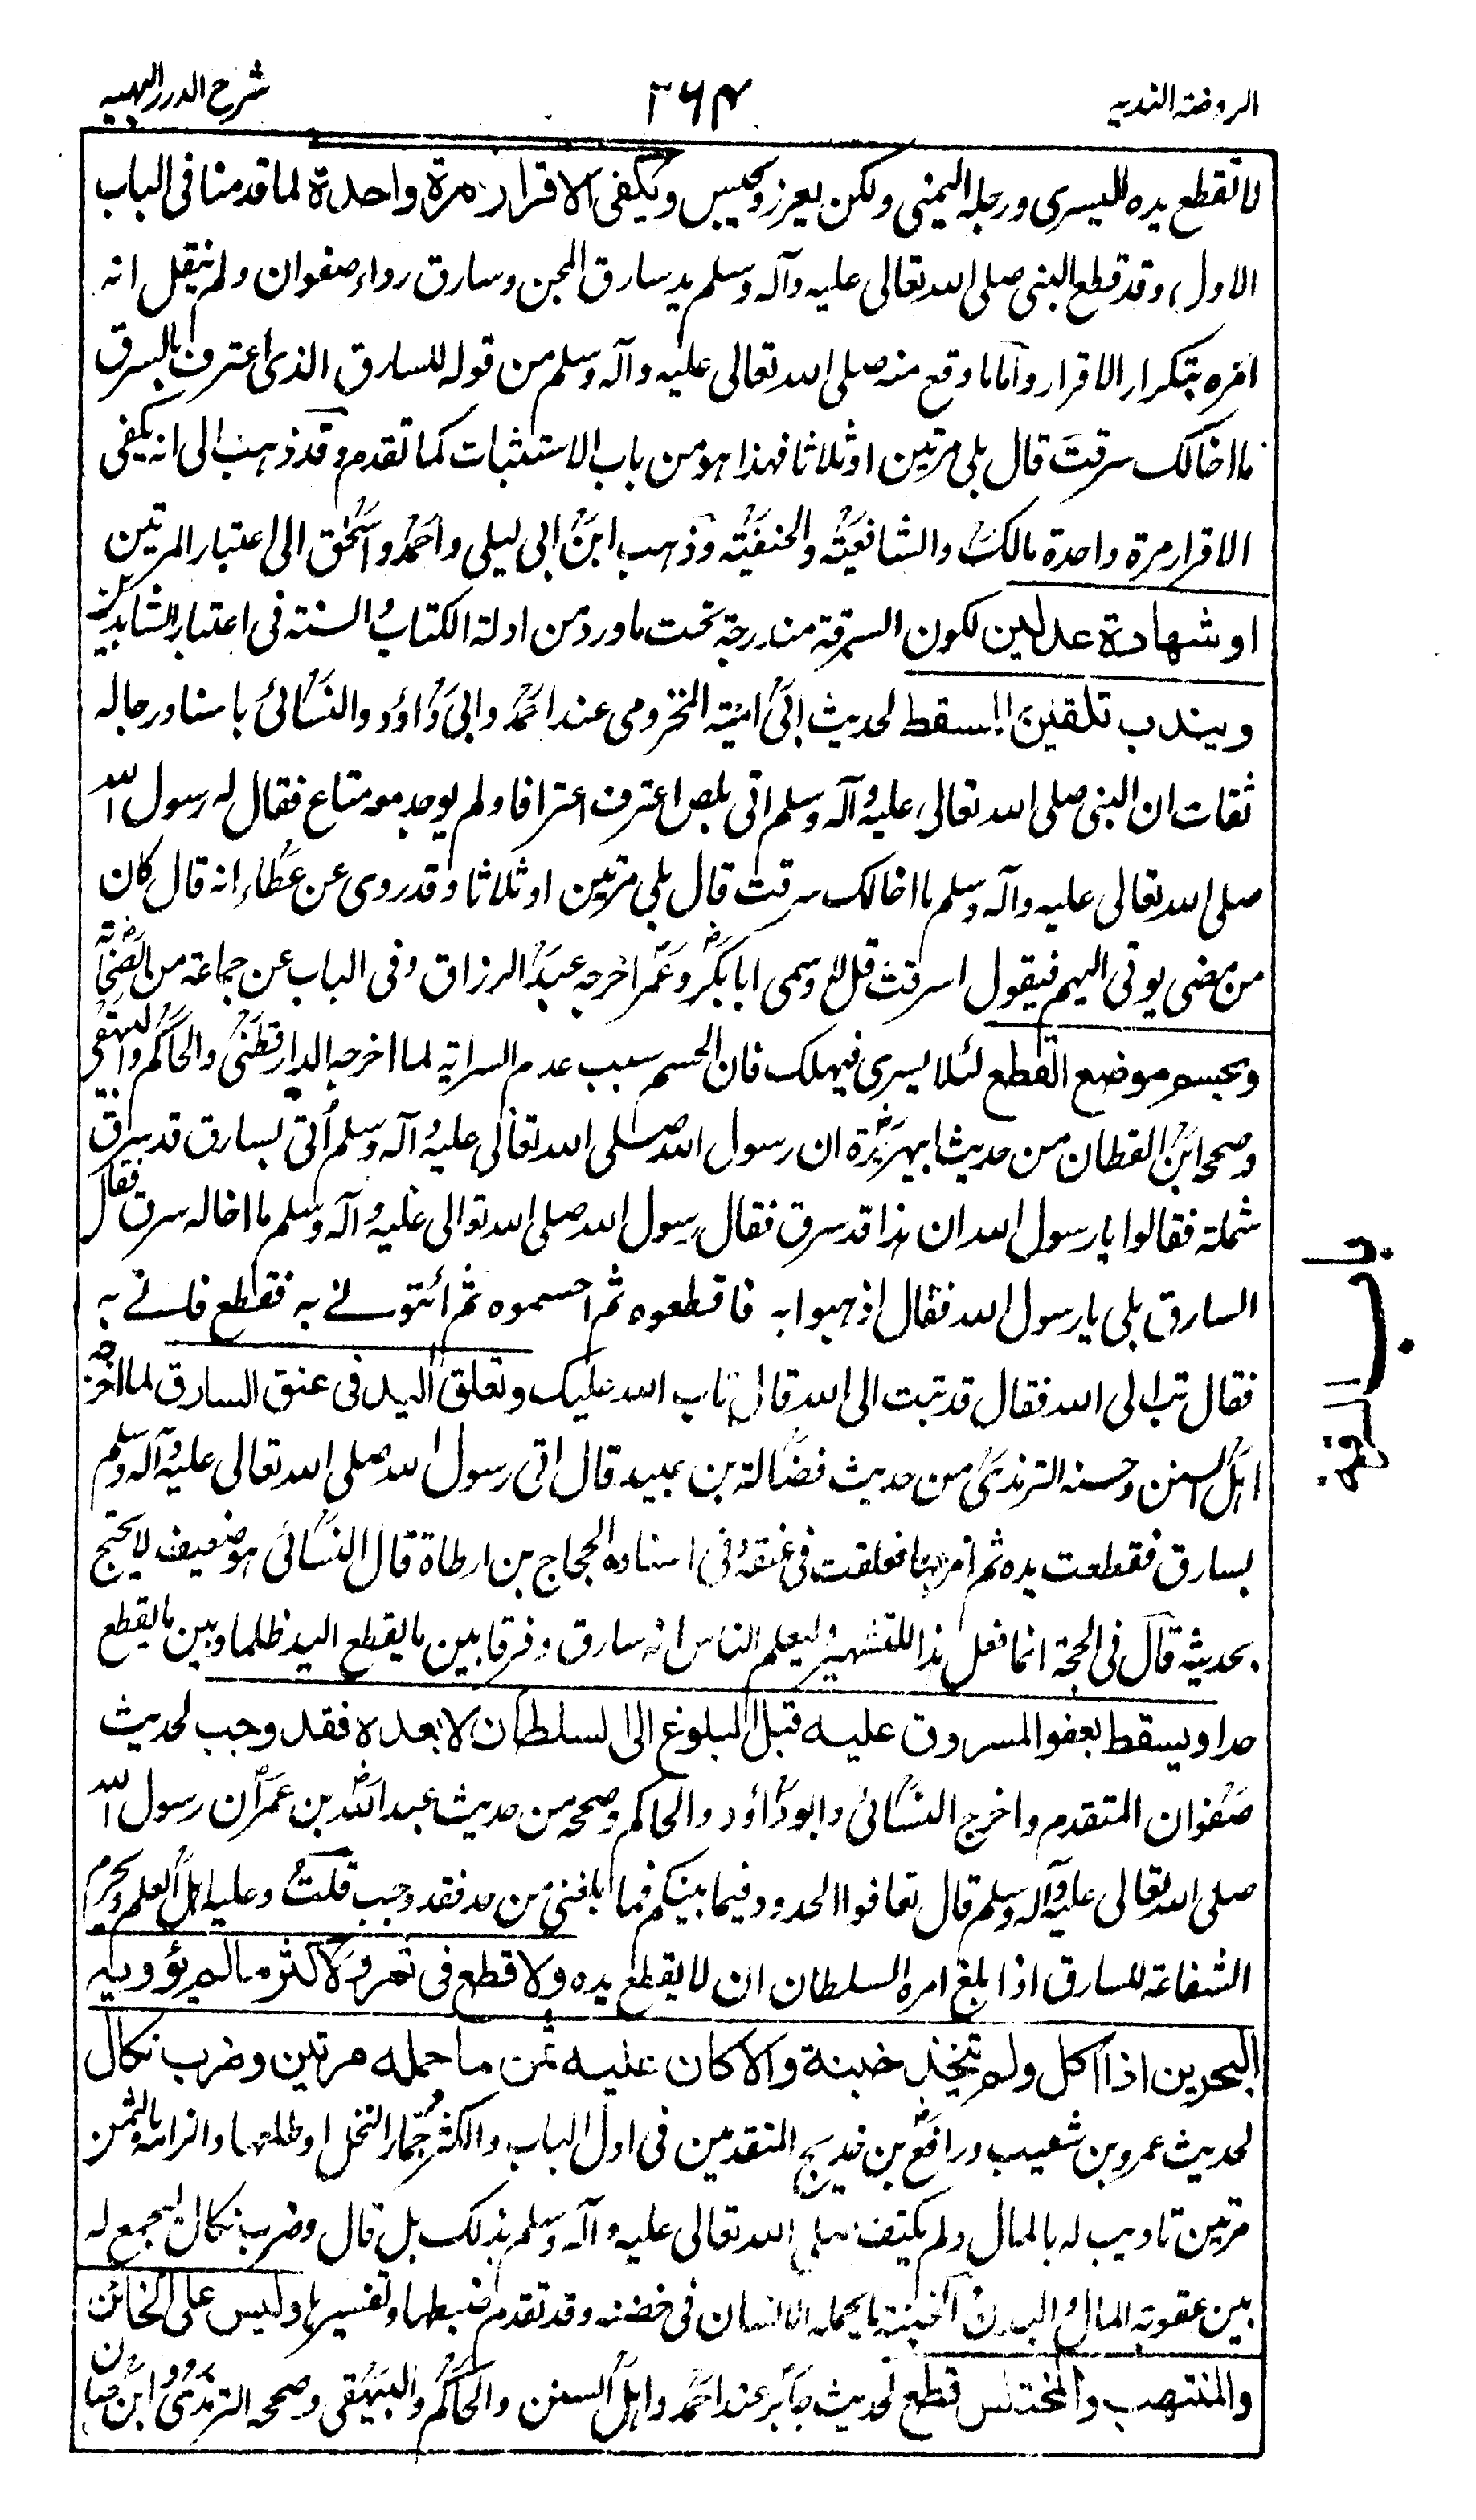 الروضة الندية
٣٦٤
شرح الدرر البهية
لا تقطع يده اليسرى ورجله اليمنى ولكن يعزر ويحبس ويكفى الاقرار مرة واحدة لما قدمنا فى الباب
الاول وقد قطع النبى صلى الله تعالى عليه وآله وسلم يد سارق المجن وسارق رداء صفوان ولم ينقل انه
امره بتكرار الاقرار واما ما وقع منه صلى الله تعالى عليه وآله وسلم من قوله للسارق الذى اعترف بالسرق
ما اخالك سرقت قال بلى مرتين او ثلاثا فهذا هو من باب الاستثبات كما تقدم وقد ذهب الى انه يكفى
الاقرار مرة واحدة مالك والشافعية والحنفية وذهب ابن ابى ليلى واحمد واسحق الى اعتبار المرتين
او شهادة عدلين لكون السرقة مندرجة تحت ما ورد من ادلة الكتاب والسنة فى اعتبار الشاهدين
ويندب تلقين المسقط لحديث ابى امية المخزومى عند احمد وابى داؤد والنسائى باسناد رجاله
ثقات ان النبى صلى الله تعالى عليه وآله وسلم اتى بلص اعترف اعترافا ولم يوجد معه متاع فقال له رسول الله
صلى الله تعالى عليه وآله وسلم ما اخالك سرقت قال بلى مرتين او ثلاثا وقد روى عن عطاء انه قال كان
من مضى يوتى اليهم فيقول اسرقت قل لا وسمى ابا بكر وعمر اخرجه عبد الرزاق وفى الباب عن جماعة من الصحابة
ويحسم موضع القطع لئلا يسرى فيهلك فان الحسم سبب عدم السراية لما اخرجه الدارقطنى والحاكم والبيهقى
وصححه ابن القطان من حديث ابيهريرة ان رسول الله صلى الله تعالى عليه وآله وسلم أتى بسارق قد سرق
شملة فقالوا يا رسول الله ان هذا قد سرق فقال رسول الله صلى الله توالى عليه وآله وسلم ما اخاله سرق فقال
السارق بلى يا رسول الله فقال اذهبوا به فاقطعوه ثم احسموه ثم ائتونے به فقطع فاتے به
فقال تب الى الله فقال قد تبت الى الله قال تاب الله عليك وتعلق اليد فى عنق السارق لما اخرجه
اهل السنن وحسنه الترندى من حديث فضالة بن عبيد قال اتى رسول الله صلى الله تعالى عليه وآله وسلم
بسارق فقطعت يده ثم امر بها فعلقت فى عنقه وفى اسناده الحجاج بن ارطاة قال النسائى هو ضعيف لا يحتج
بحديثه قال فى الحجة انما فعل هذا للتشهير وليعلم الناس انه سارق وفرقا بين ما يقطع اليد ظلما وبين ما يقطع
حدا ويسقط بعفو المسروق عليه قبل البلوغ الى السلطان لا بعده فقد وجب لحديث
صفوان المتقدم واخرج النسائى وابو داؤد والحاكم وصححه من حديث عبد الله بن عمر ان رسول الله
صلى الله تعالى عليه وآله وسلم قال تعافوا الحدود فيما بينكم فما بلغنى من حد فقد وجب قلت وعليه اهل العلم ويحرم
الشفاعة للسارق اذا بلغ امره السلطان ان لا يقطع يده ولا قطع فى ثمر ولا كثر ما لم يؤويه
البحرين اذا اكل ولم يتخذ خبنة والا كان عليه ثمن ما حمله مرتين وضرب نكال
لحديث عمرو بن شعيب ورافع بن خديج المتقدمين فى اول الباب والكثر جمار النخل او طلعها والزامه بالثمن
مرتين تاديب له بالمال ولم يكتف صلى الله تعالى عليه وآله وسلم بذلك بل قال وضرب نكال ليجمع له
بين عقوبة المال والبدن الخبنة ما يحمله الانسان فى حضنه وقد تقدم ضبطها وتفسيرها وليس على الخائن
والمنتهب والمختلس قطع لحديث جابر عند احمد واهل السنن والحاكم والبيهقى وصححه الترمذى وابن حبان
باب السرقة